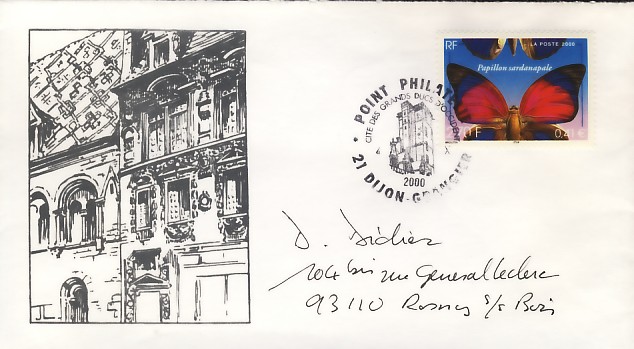 RF
LA POSTE 2000
Papillon sardanapale
F 0,41 €
POINT PHILAT
CITE DES GRANDS DUCS D'OCCIDENT
21 DIJON-GRANGIER
2000
D. Didier
104 bis rue General Leclerc
93110 Rosny s/s Bois